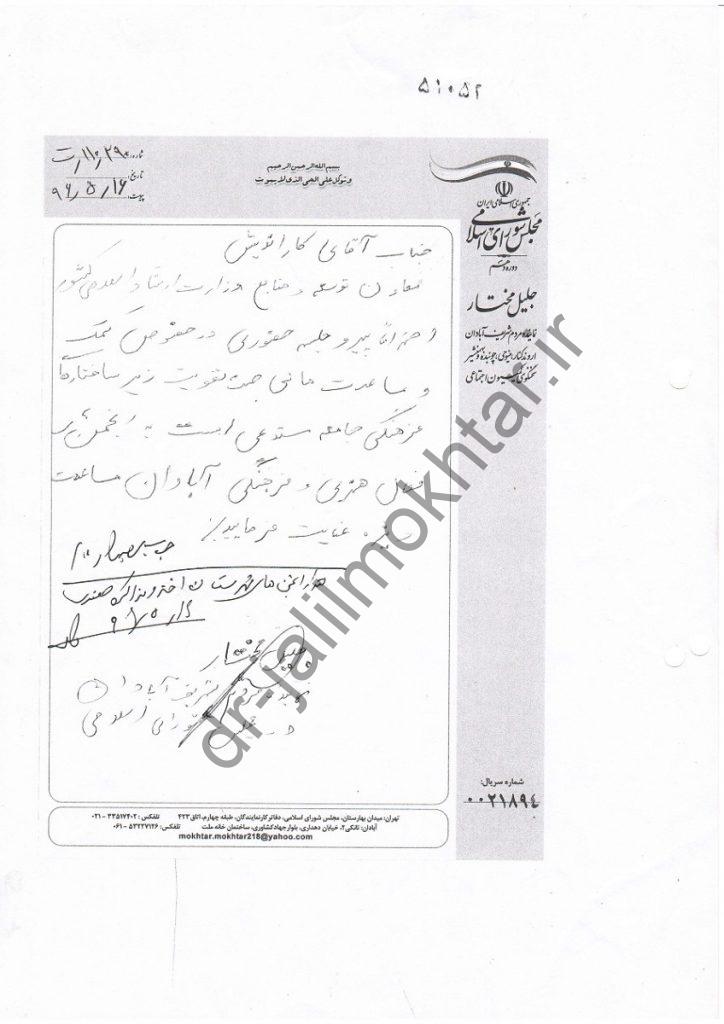 ۵۱۰۵۲
بسم الله الرحمن الرحیم
و توکل علی الحی الذی لایموت
شماره: ۱۱۰/۲۹۰/ت
تاریخ: ۹۶/۵/۱۶
پیوست:
جمهوری اسلامی ایران
مجلس شورای اسلامی
دوره دهم
جلیل مختار
نماینده مردم شریف آبادان
سخنگوی کمیسیون اجتماعی
جناب آقای
معاون توسعه و منابع وزارت ارشاد اسلامی کشور
احتراماً پیرو جلسه حضوری در خصوص کمک
و مساعدت مالی جهت تقویت زیر ساختارهای
فرهنگی جامعه مستدعی است به انجمن های
فعال هنری و فرهنگی آبادان مساعدت
ویژه عنایت فرمایید
جلیل مختار
نماینده مردم شریف آبادان
در مجلس شورای اسلامی
شماره سریال:
۰۰۲۱۸۹۴
تهران: میدان بهارستان، مجلس شورای اسلامی، دفاتر کارنمایندگان، طبقه چهارم، اتاق ۴۲۳ تلفکس: ۳۳۵۱۷۴۰۲ - ۰۲۱
آبادان: تانکی۲، خیابان دهداری، بلوار جهاد کشاورزی، ساختمان خانه ملت تلفکس: ۵۳۲۲۷۱۲۶ - ۰۶۱
mokhtar.mokhtar218@yahoo.com
dr-jalilmokhtar.ir